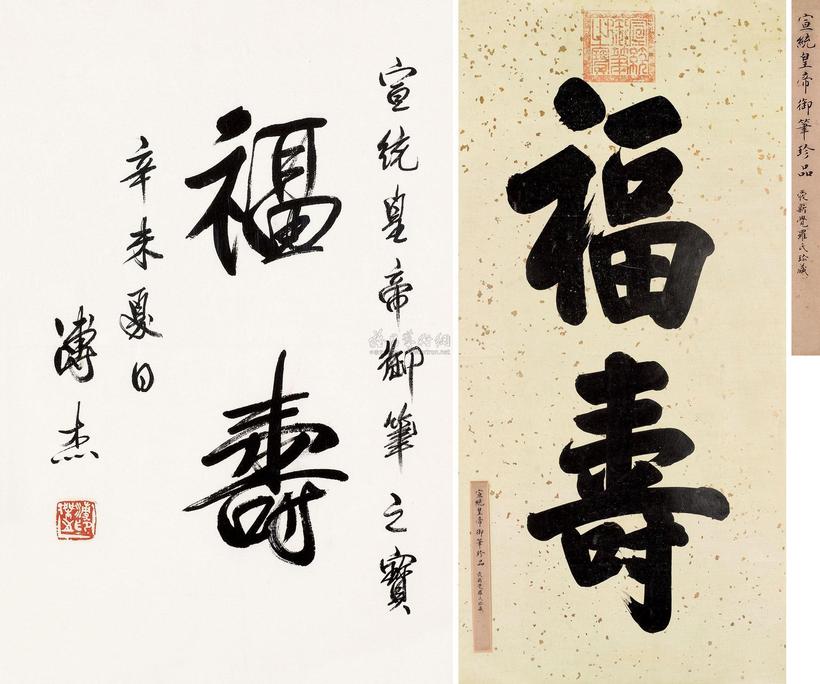 宣統皇帝御筆之寶
福壽
辛未夏日
溥杰
溥杰之印
宣統御筆之寶
福壽
宣統皇帝御筆珍品
愛新覺羅氏珍藏
宣統皇帝御筆珍品
愛新覺羅氏珍藏